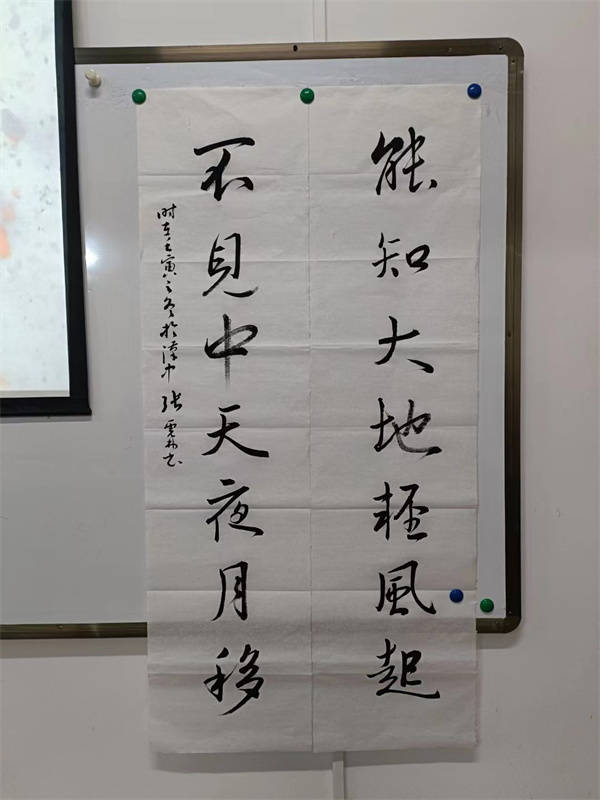 能知大地輕風起
不見中天夜月移
时在壬寅之冬於漢中 张 书